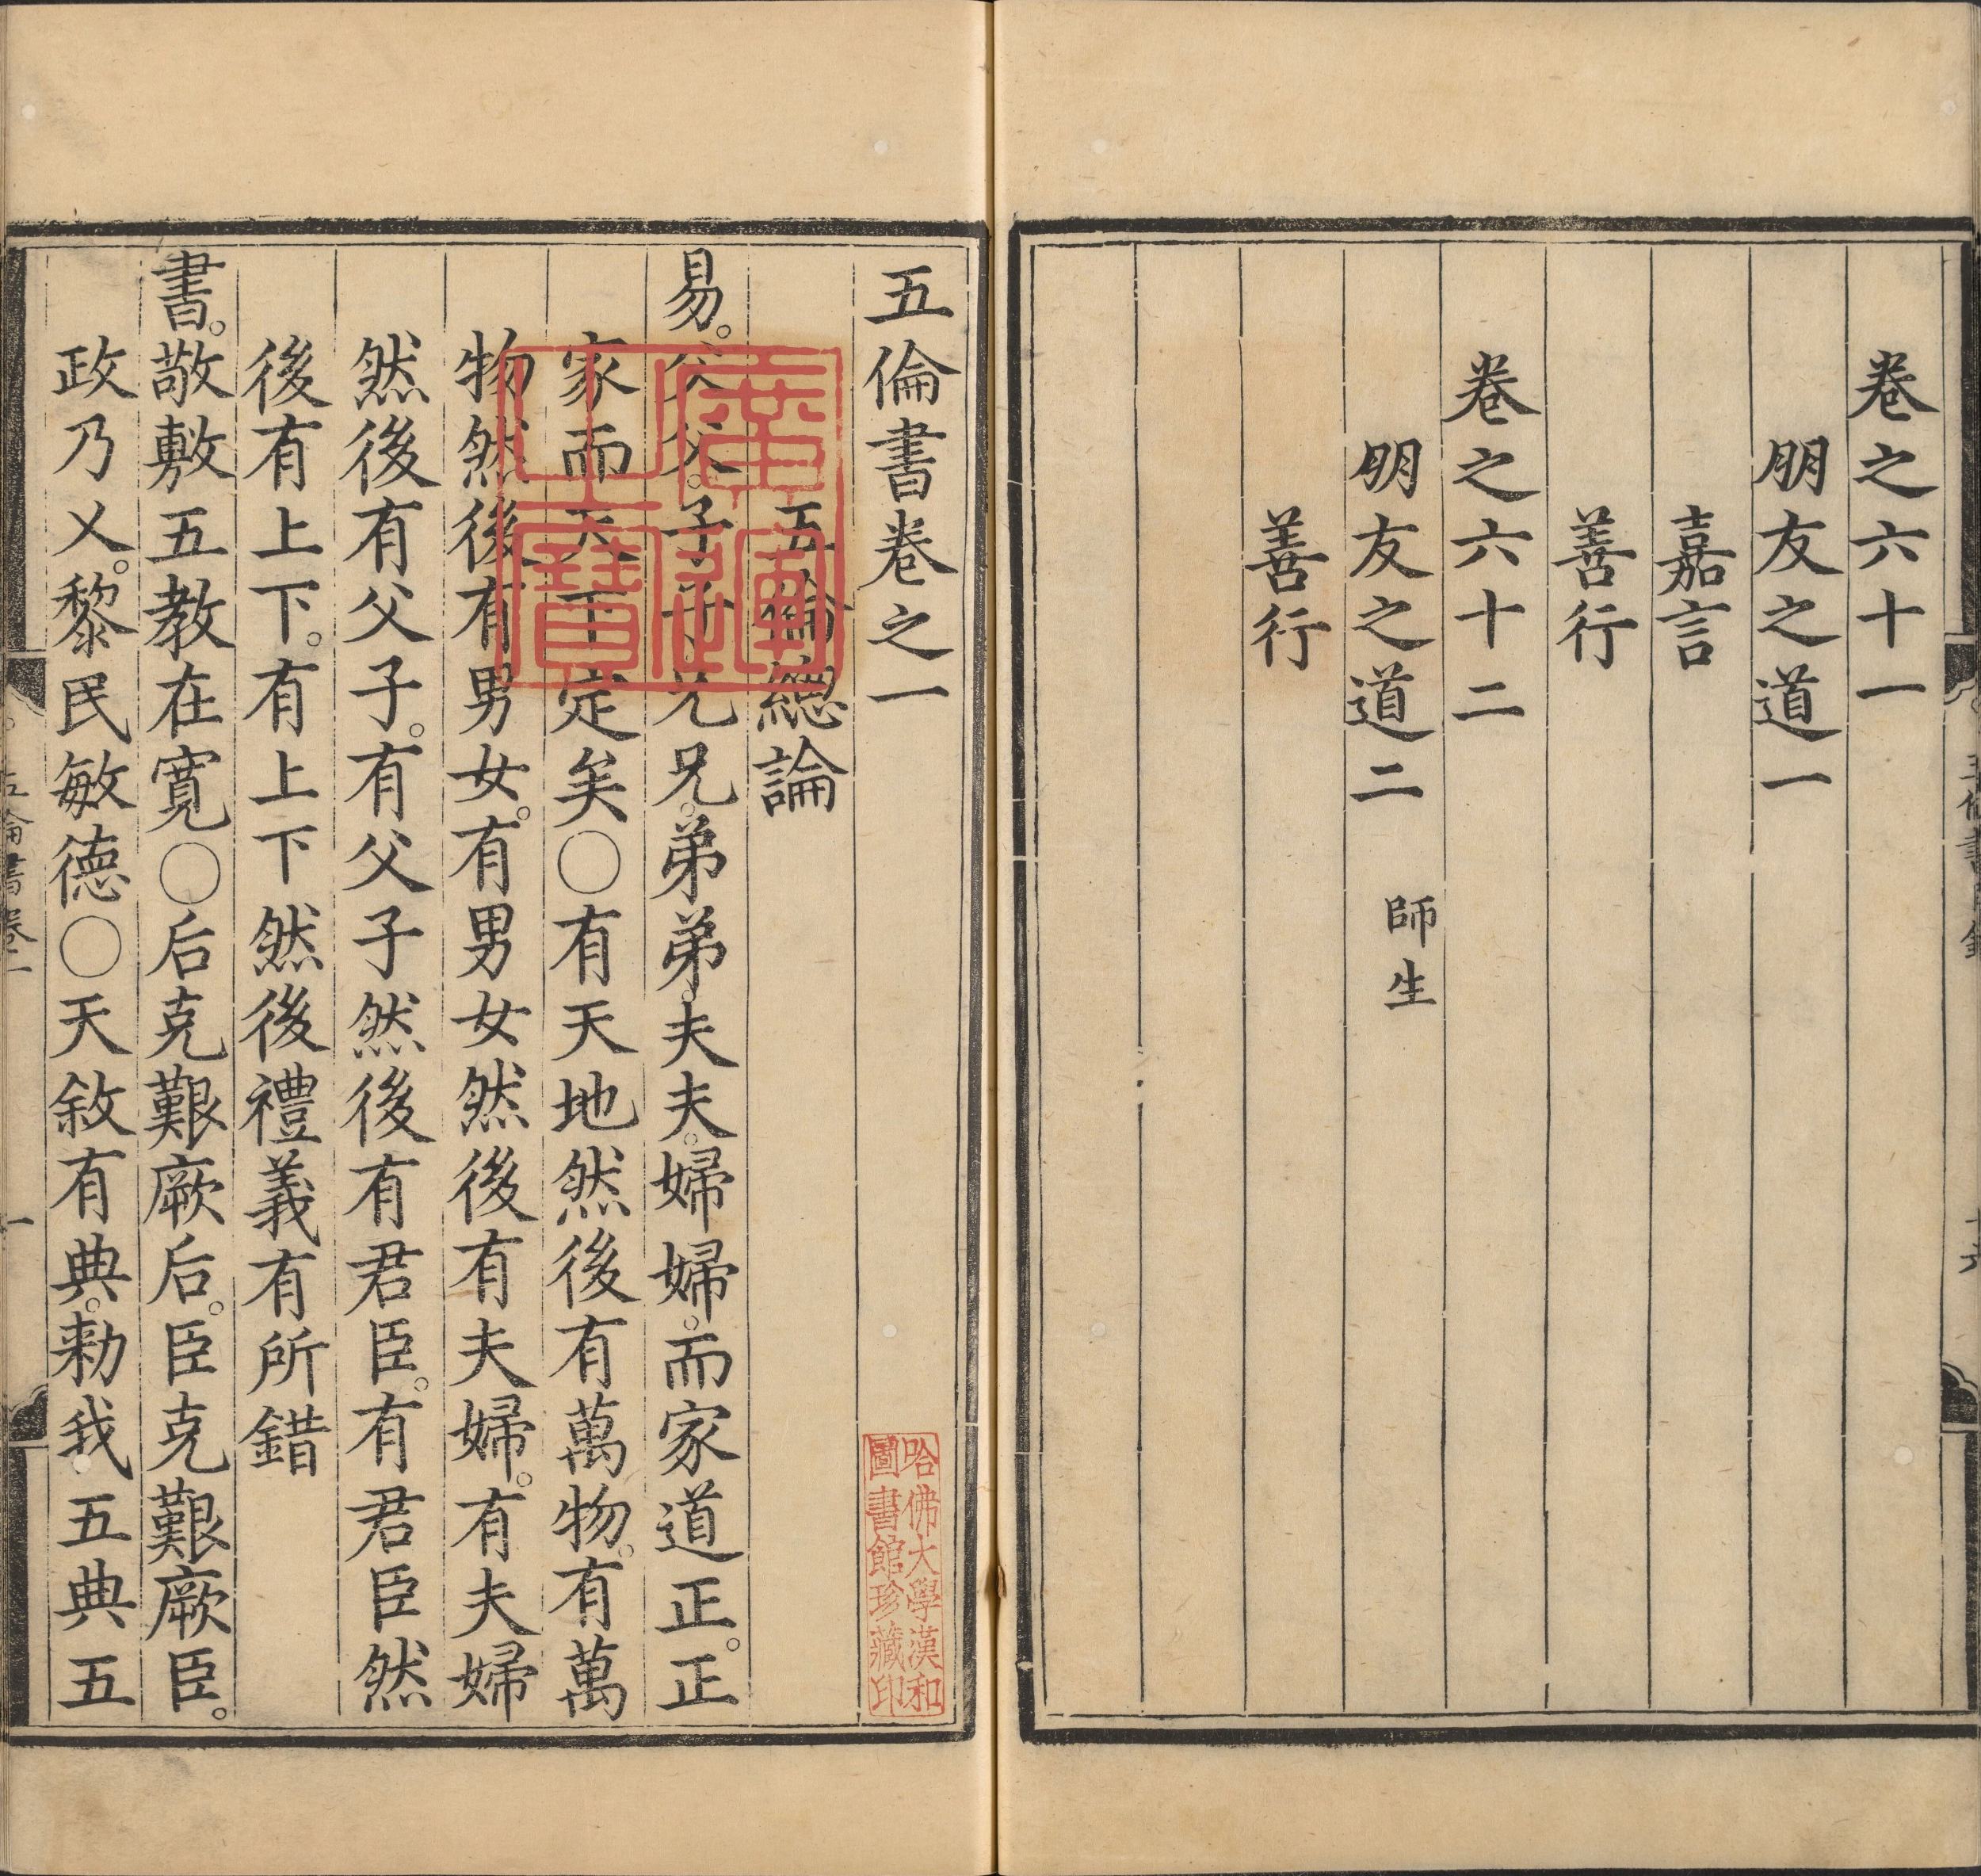 卷之六十一
朋友之道一
嘉言
善行
卷之六十二
朋友之道二 師生
善行
五倫書卷之一
五倫總論
易。父父。子子。兄兄。弟弟。夫夫。婦婦。而家道正。正
家而天下定矣○有天地然後有萬物。有萬
物然後有男女。有男女然後有夫婦。有夫婦
然後有父子。有父子然後有君臣。有君臣然
後有上下。有上下然後禮義有所錯
書。敬敷五教在寬○后克艱厥后。臣克艱厥臣。
政乃乂。黎民敏德○天敘有典。勑我五典五
五倫書卷一
一
廣運之寶
哈佛大學漢和
圖書館珍藏印